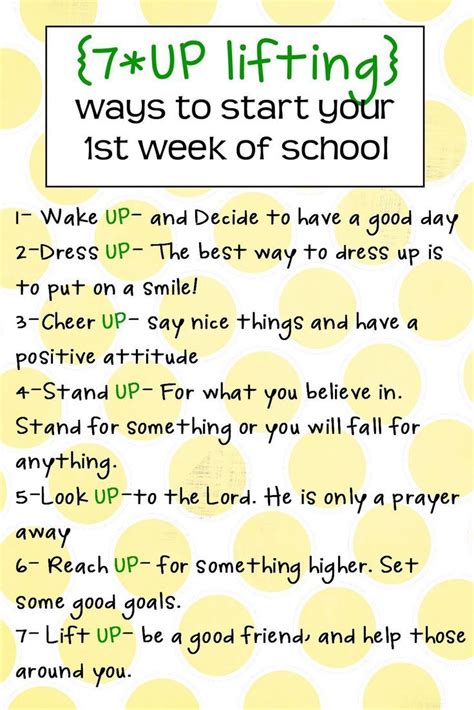 {7*UP lifting}
ways to start your
1st week of school
1- Wake UP- and Decide to have a good day
2-Dress UP- The best way to dress up is
to put on a smile!
3-Cheer UP- say nice things and have a
positive attitude
4-Stand UP- For what you believe in.
Stand for something or you will fall for
anything.
5-Look UP-to the Lord. He is only a prayer
away
6- Reach UP- for something higher. Set
some good goals.
7- Lift UP- be a good friend, and help those
around you.